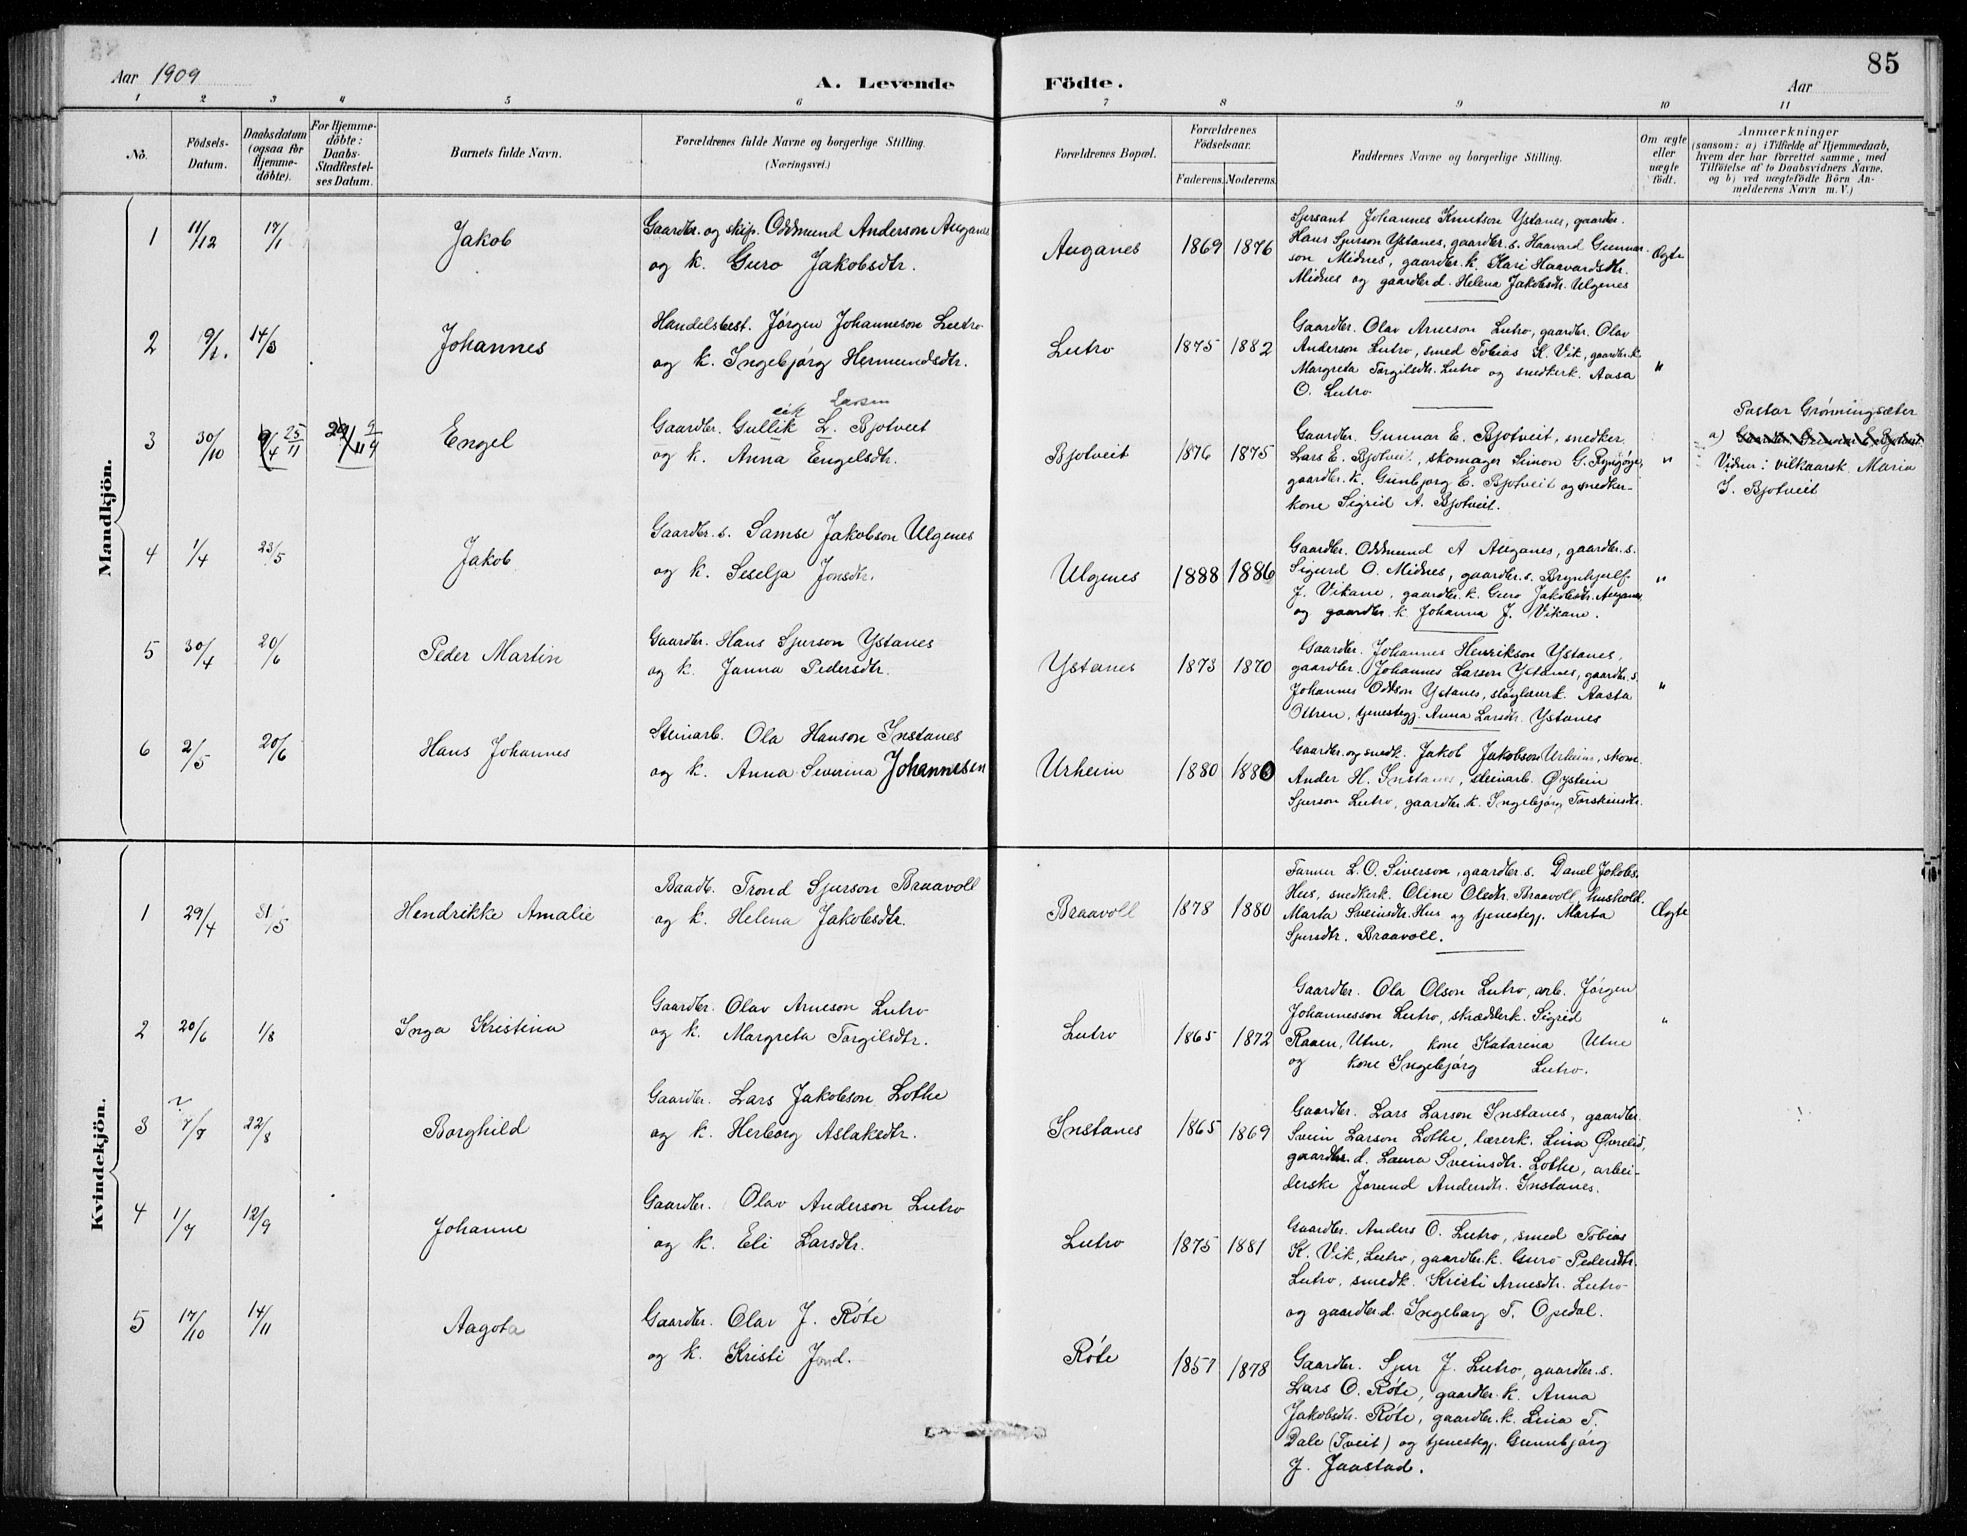 85
Aar 1909
A. Levende Födte.
Aar
1 2 3 4 5 6 7 8 9 10 11
No.
Födsels-Datum.
Daabsdatum (ogsaa for Hjemme-döbte).
For Hjemme-döbte: Daabs-Stadfæstel-ses Datum.
Barnets fulde Navn.
Forældrenes fulde Navne og borgerlige Stilling. (Næringsvei.)
Forældrenes Bopæl.
Forældrenes Födselsaar.
Faderens. Moderens.
Faddernes Navne og borgerlige Stilling.
Om ægte eller uægte födt.
Anmærkninger
(saasom: a) i Tilfælde af Hjemmedaab, hvem der har forrettet samme, med Tilföielse af to Daabsvidners Navne. og b) ved uægtefödte Börn An-melderens Navn m. V.)
Mandkjön.
1 11/12 17/1 Jakob
Gaardbr. og skip. Oddmund Anderson Auganes
og k. Guro Jakobsdtr.
Auganes 1869 1876
Sjersant Johannes Knutson Ystanes, gaardbr.
Hans Sjurson Ystanes, gaardbr. s. Haavard Gunnar-
son Midnes, gaardbr. k. Kari Haavardsdtr.
Midnes og gaardbr d. Helena Jakobsdtr. Ulgenes
Ægte
2 9/1. 14/3 Johannes
Handelsbest. Jørgen Johanneson Lutro
og k. Ingebjørg Hermundsdtr.
Lutro 1875 1882
Gaardbr. Olav Arneson Lutro, gaardbr. Olav
Anderson Lutro, smed Tobias K. Vik, gaardbr. k.
Margreta Torgilsdtr. Lutro og snedkerk. Aasa
O. Lutro
"
3 30/10 9/4 25/11 29/11 9/4 Engel
eik Larsen
Gaardbr. Gullik L. Bjotveit
og k. Anna Engelsdtr.
Bjotveit 1876 1875
Gaardbr. Gunnar E. Bjotveit, snedker
Lars E. Bjotveit, skomager Simon G.
gaardbr. k. Gunbjørg E. Bjotveit og snedker-
kone Sigrid A. Bjotveit.
"
Pastor Grønningsæter
a) Gaardbr. Gunnar E. Bjotveit
Vidner: vilkaarsk. Maria
I. Bjotveit
4 1/4 23/5 Jakob
Gaardbr. s. Samse Jakobson Ulgenes
og k. Seselja Jonsdtr.
Ulgenes 1888 1886
Gaardbr. Oddmund A Auganes, gaardbr. s.
Sigurd O. Midnes, gaardbr. s. Brynhjulf
J. Vikane, gaardbr. k. Guro Jakobsdtr. Auganes
og gaardbr. k Johanna J. Vikane.
"
5 30/4 20/6 Peder Martin
Gaardbr. Hans Sjurson Ystanes
og k. Janna Pedersdtr.
Ystanes 1873 1870
Gaardbr. Johannes Henrikson Ystanes,
gaardbr. Johannes Larson Ystanes, gaardbr. s.
Johannes Oddson Ystanes, sløglærerk. Aasta
Ottren, tjenestegj. Anna Larsdtr. Ystanes
"
6 2/5 20/6 Hans Johannes
Steinarb. Ola Hanson Instanes
og k. Anna Severina Johannesen
Urheim 1880 1880
Gaardbr. og smedk. Jakob Jakobson Urheim, skom.
Ander H. Instanes, steinarb. Øystein
Sjurson Lutro, gaardbr. k. Ingebjørg Torskinsdtr.
Kvindekjön.
1 29/4 31/5 Hendrikke Amalie
Baadb. Trond Sjurson Braavoll
og k. Helena Jakobsdtr.
Braavoll 1878 1880
Farmer L. O. Siverson, gaardbr. s. Danel Jakobs.
Hus, snedkerk. Oline Olsdtr. Braavoll, hushold.
Marta Sveinsdtr. Hus og tjenestegj. Marta
Sjursdtr. Braavoll.
Ægte
2 20/6 1/8 Inga Kristina
Gaardbr. Olav Arneson Lutro
og k. Margreta Torgilsdtr.
Lutro 1865 1872
Gaardbr. Ola Olson Lutro, arb. Jørgen
Johannesson Lutro, skrædderk. Sigrid
Raaen, Utne, kone Katarina Utne
og kone Ingebjørg Lutro.
"
3 ? 7/7 22/8 Borghild
Gaardbr. Lars Jakobson Lothe
og k. Herborg Aslaksdtr.
Instanes 1865 1869
Gaardbr. Lars Larson Instanes, gaardbr.
Svein Larson Lothe, lærerk. Lina Øvrelid,
gaardbr. d. Laura Sveinsdtr. Lothe, arbei-
derske Jorund Andersdtr. Instanes.
4 1/7 12/9 Johanne
Gaardbr. Olav Anderson Lutro
og k. Eli Larsdtr.
Lutro 1875 1881
Gaardbr. Anders O. Lutro, smed Tobias
K. Vik, Lutro, gaardbr. k. Guro Pedersdtr.
Lutro, smedk. Kristi Arnesdtr. Lutro
og gaardbr. d. Ingeborg T. Opedal.
5 17/10 14/11 Aagota
Gaardbr. Olav J. Røte
og k. Kristi Jond.
Røte 1857 1878
Gaardbr. Sjur J. Lutro, gaardbr. s.
Lars O. Røte, gaardbr. k. Anna
Jakobsdtr. Røte, gaardbr. k. Lina T.
Dale (Tveit) og tjenestegj. Gunnbjørg
J. Jaastad.